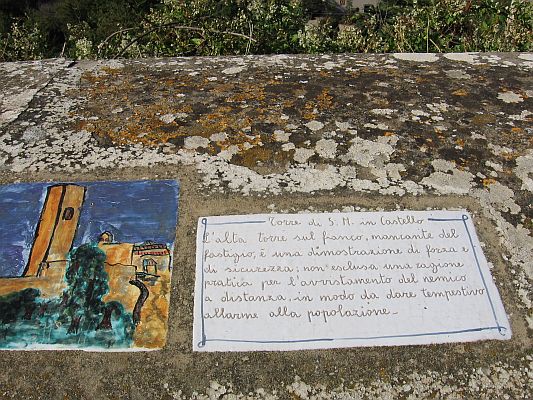 Torre di S. M. in Castello
L'alta torre sul fianco, mancante del
fastigio, è una dimostrazione di forza e
di sicurezza; non esclusa una ragione
pratica per l'avvistamento del nemico
a distanza, in modo da dare tempestivo
allarme alla popolazione.